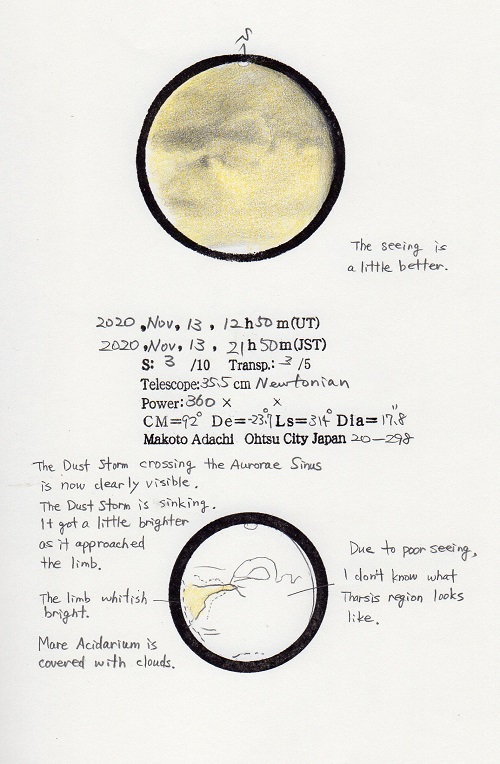 S
The seeing is
a little better.
2020, Nov, 13, 12h50m(UT)
2020, Nov, 13, 21h50m(JST)
S: 3 /10 Transp.: 3 /5
Telescope: 35.5 cm Newtonian
Power: 360 × ×
CM=92° De=-23.7° Ls=314° Dia=17.8"
Makoto Adachi Ohtsu City Japan 20-298
The Dust Storm crossing the Aurorae Sinus
is now clearly visible.
The Dust Storm is sinking.
It got a little brighter
as it approached
the limb.
Due to poor seeing,
I don't know what
Tharsis region looks
like.
The limb whitish
bright.
Mare Acidarium is
covered with clouds.